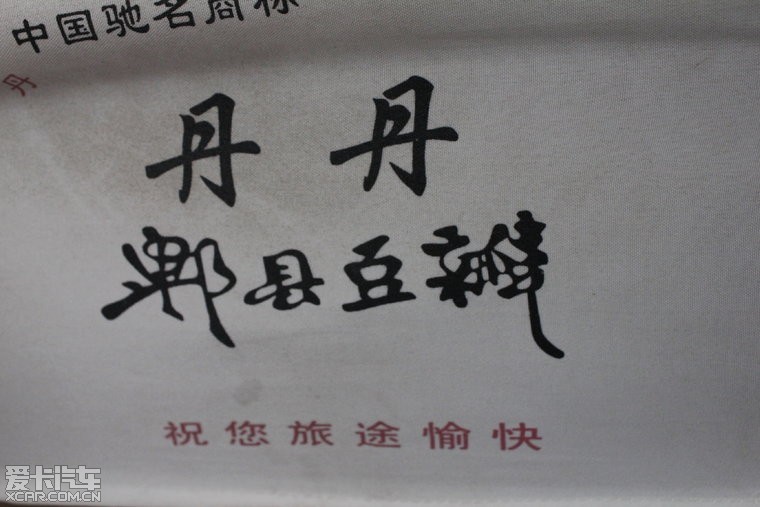 中国驰名商标
丹
丹丹
郫县豆瓣
祝您旅途愉快
爱卡汽车
XCAR.COM.CN